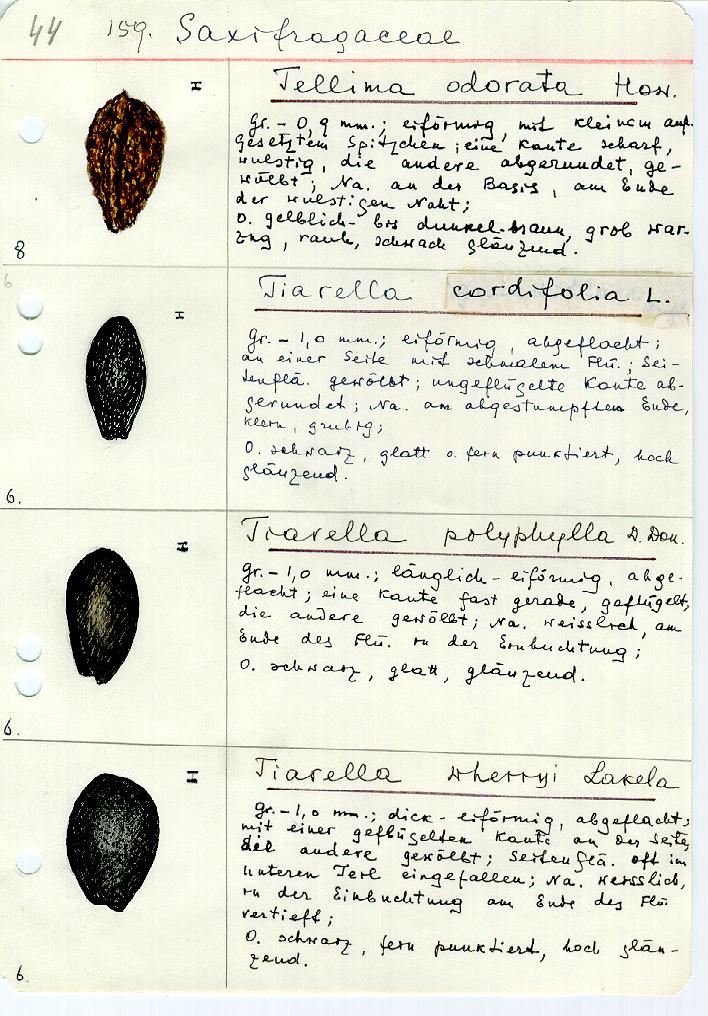 44 159. Saxifragaceae
Tellima odorata How.
Gr. - 0,9 mm.; eiförmig, mit kleinem auf-
gesetztem Spitzchen; eine Kante scharf,
wulstig, die andere abgerundet, ge-
wölbt; Na. an der Basis, am Ende
der wulstigen Naht;
O. gelblich- bis dunkel-braun, grob war-
zig, rauh, schwach glänzend.
8
6
Tiarella cordifolia L.
Gr. - 1,0 mm.; eiförmig, abgeflacht;
an einer Seite mit schmalem Flü.; Sei-
tenflä. gewölbt; ungeflügelte Kante ab-
gerundet; Na. am abgestumpften Ende,
klein, grubig;
O. schwarz, glatt o. fein punktiert, hoch
glänzend.
6.
Tiarella polyphylla D. Don.
Gr. - 1,0 mm.; länglich-eiförmig, abge-
flacht; eine Kante fast gerade, geflügelt,
die andere gewölbt; Na. weisslich, am
Ende des Flü. in der Einbuchtung;
O. schwarz, glatt, glänzend.
6.
Tiarella wherryi Lakela
Gr. - 1,0 mm.; dick-eiförmig, abgeflacht;
mit einer geflügelten Kante an der Seite,
die andere gewölbt; Seitenflä. oft im
unteren Teil eingefallen; Na. weisslich,
in der Einbuchtung am Ende des Flü.
vertieft;
O. schwarz, fein punktiert, hoch glän-
zend.
6.